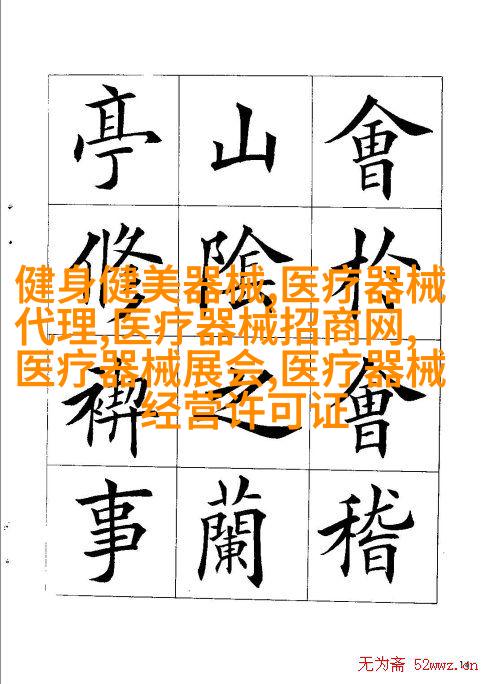 會扵會稽
山陰之蘭
亭修禊事
健身健美器械,医疗器械
代理,医疗器械招商网,
医疗器械展会,医疗器械
经营许可证
无为斋 52wwz.cn